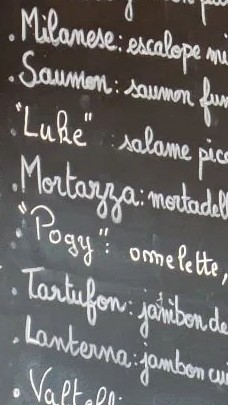 . Milanese: escalope mi
. Saumon: saumon fum
. "Luke" : salame pic
. Mortazza: mortadell
. "Pogy": omelette,
. Tartufon: jambon de
. Lanterna: jambon cui
. Valtell